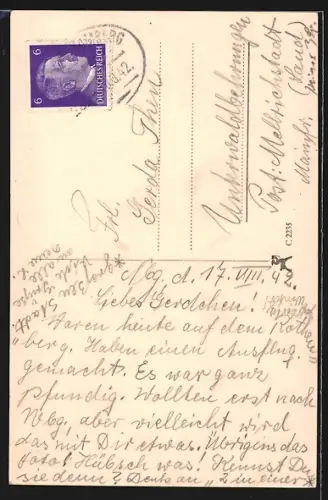 6
DEUTSCHES REICH
6
42.
Frl.
Gerda Then
Unterwaldbehrungen
Post: Mellrichstadt
Land
Mainfr.
C 2235
Nbg, d. 17. VIII. 42
Liebes Gerdchen!
Waren heute auf dem Roth
berg. Haben einen Ausflug
gemacht. Es war ganz
pfundig. Wollten erst nach
Wbg. aber vielleicht wird
das mit Dir etwas. Übrigens das
Foto! Hübsch was! Kennst Du
sie denn? Denk an „2 in einer*
*großen Stadt.“
Viele Grüße
an alle